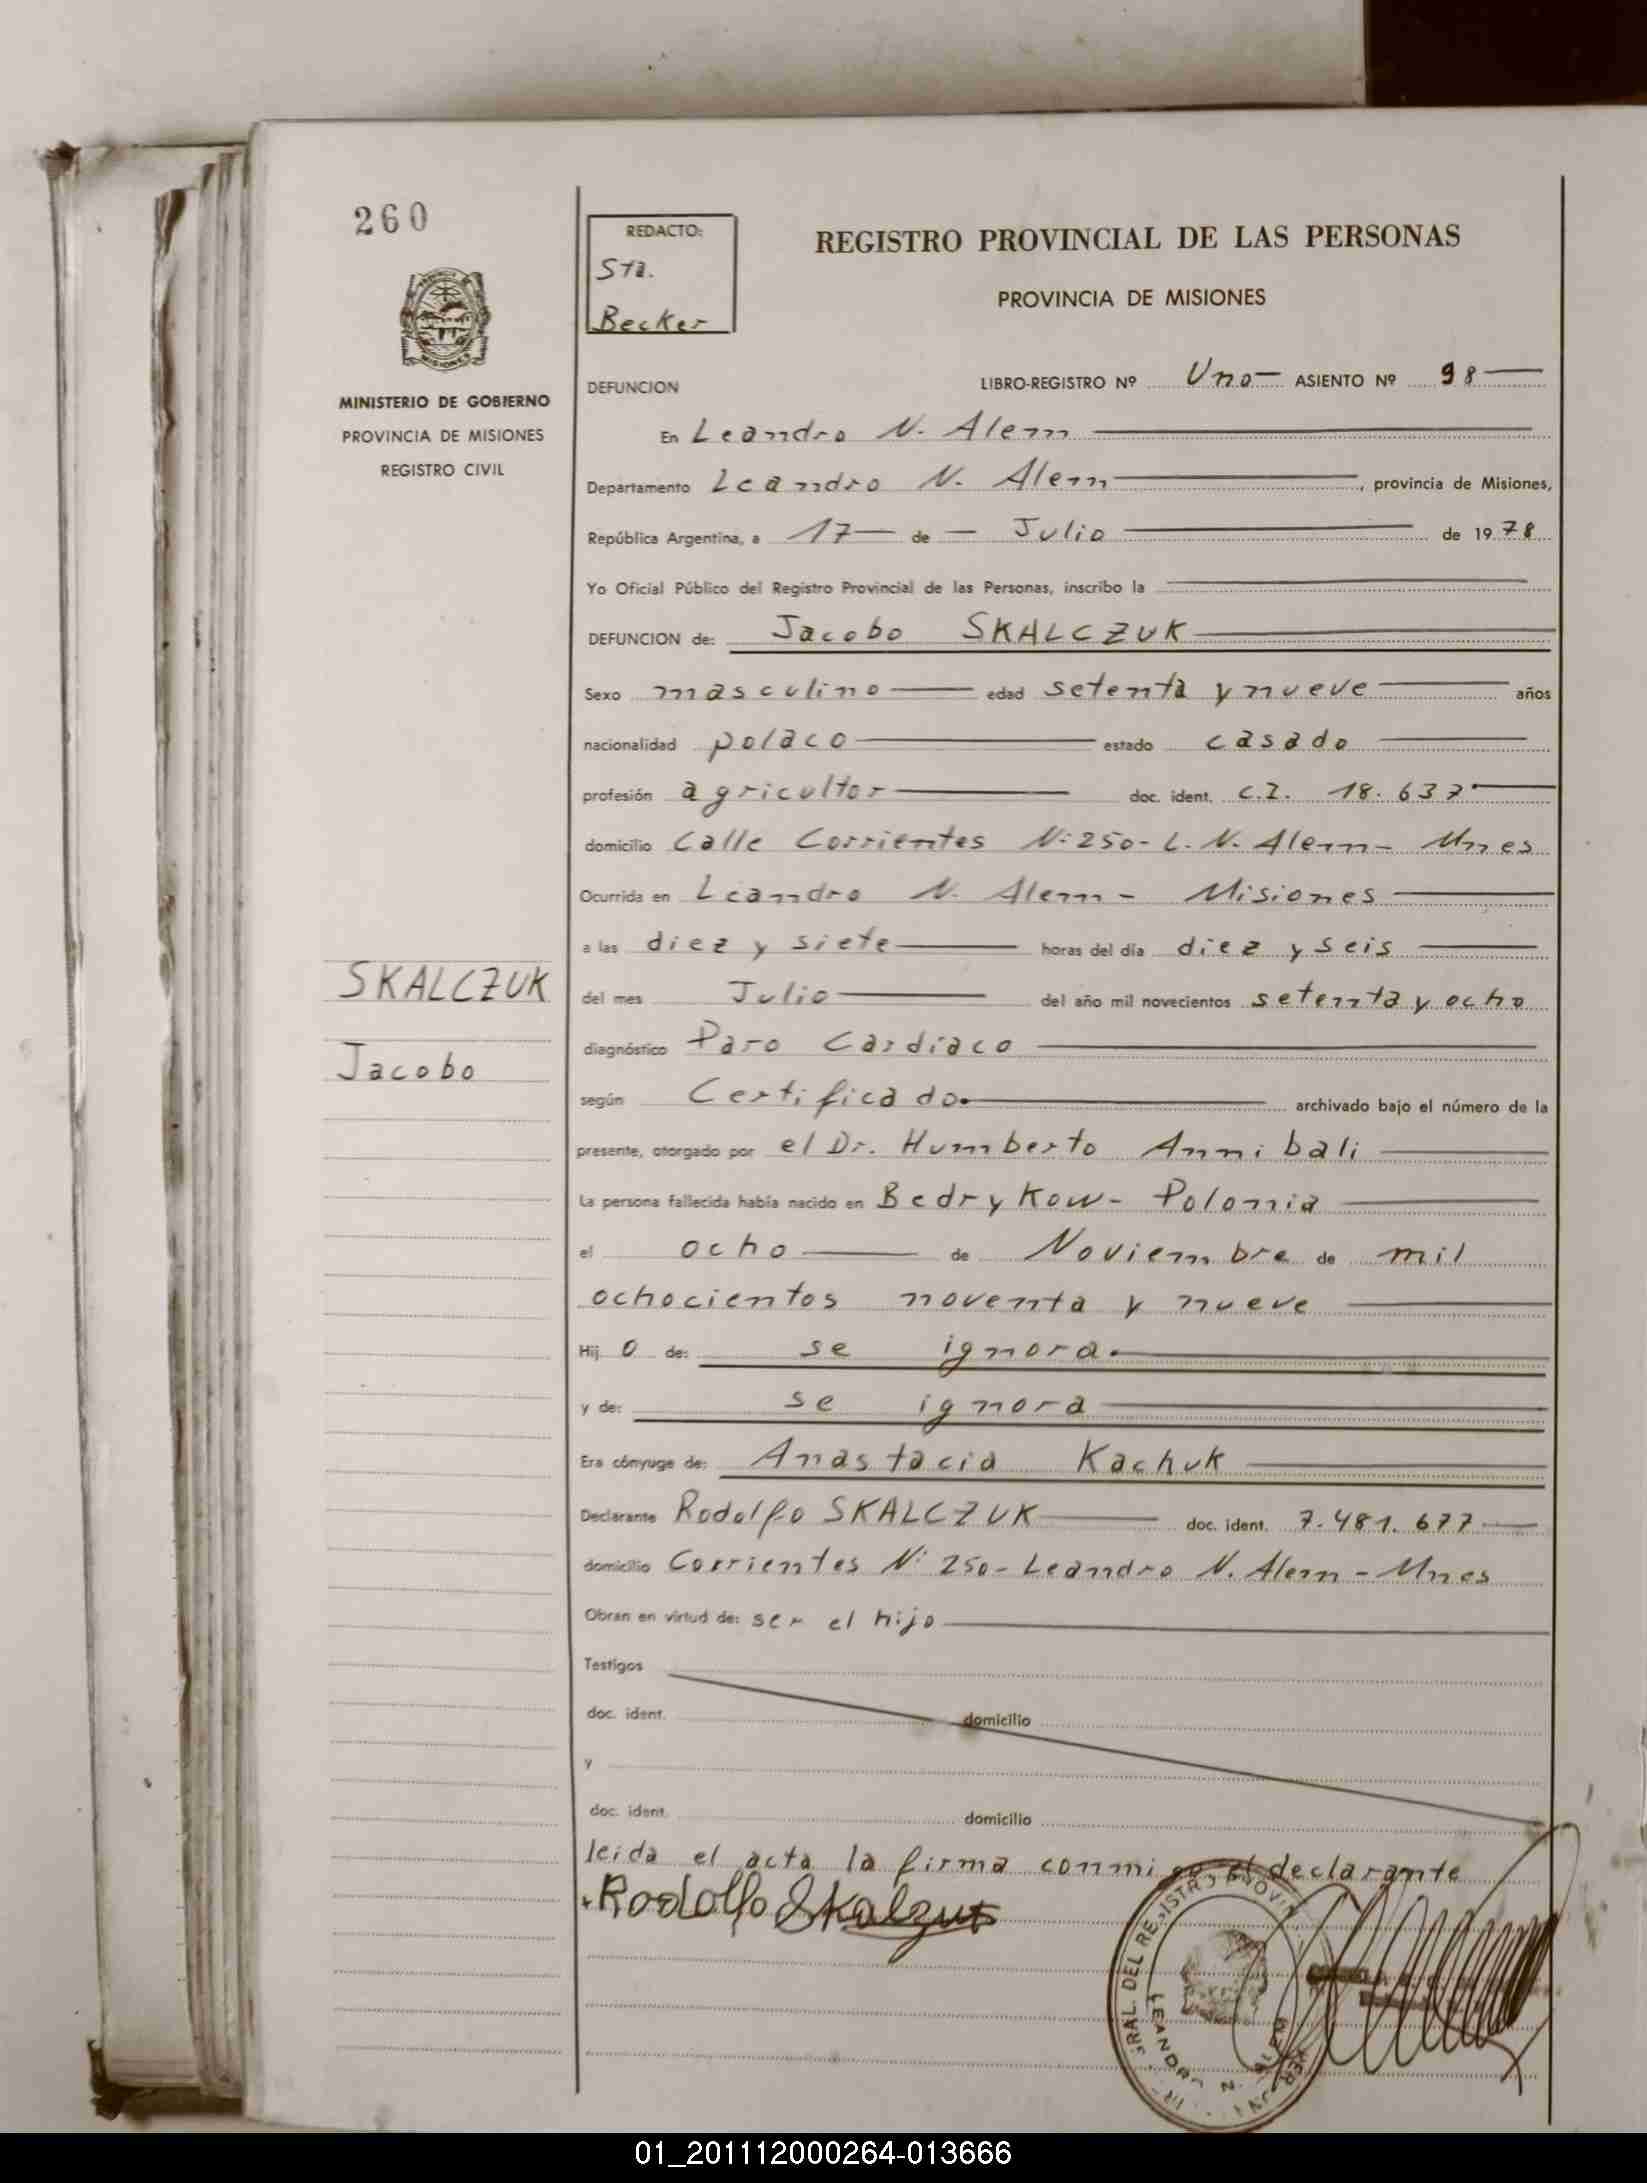 260
REDACTO:
Sta.
Becker
REGISTRO PROVINCIAL DE LAS PERSONAS
PROVINCIA DE MISIONES
MISIONES
MINISTERIO DE GOBIERNO
PROVINCIA DE MISIONES
REGISTRO CIVIL
DEFUNCION
LIBRO-REGISTRO Nº Uno ASIENTO Nº 98
En Leandro N. Alem
Departamento Leandro N. Alem, provincia de Misiones,
República Argentina, a 17 de Julio de 1978
Yo Oficial Público del Registro Provincial de las Personas, inscribo la
DEFUNCION de: Jacobo SKALCZUK
Sexo masculino edad setenta y nueve años
nacionalidad polaco estado casado
profesión agricultor doc. ident. C.I. 18.637
domicilio Calle Corrientes Nº 250- L. N. Alem- Mnes
Ocurrida en Leandro N. Alem- Misiones
a las diez y siete horas del día diez y seis
del mes Julio del año mil novecientos setenta y ocho
SKALCZUK
Jacobo
diagnóstico Paro Cardiaco
según Certificado archivado bajo el número de la
presente, otorgado por el Dr. Humberto Annibali
La persona fallecida había nacido en Bedrykow- Polonia
el ocho de Noviembre de mil
ochocientos noventa y nueve
Hij o de: se ignora
y de: se ignora
Era cónyuge de: Anastacia Kachuk
Declarante Rodolfo SKALCZUK doc. ident. 7.481.677
domicilio Corrientes Nº 250- Leandro N. Alem - Mnes
Obran en virtud de: ser el hijo
Testigos
doc. ident. domicilio
y
doc. ident. domicilio
leida el acta la firma conmigo el declarante
Rodolfo Skalzuk
01_201112000264-013666